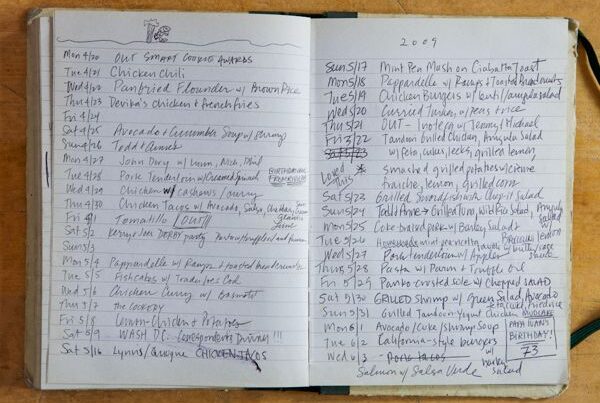 Mon 4/20 OUT SMART COOKIE AWARDS
Tue 4/21 Chicken Chili
Wed 4/22 Panfried Flounder w/ Brown Rice
Thu 4/23 Devika's chicken + french fries
Fri 4/24
Sat 4/25 Avocado + Cucumber Soup w/ Shrimp
Sun 4/26 Todd + Anne's
Mon 4/27 John Dory w/
Tue 4/28 Pork Tenderloin w/ Creamed Spinach
Wed 4/29 Chicken w/ cashews / curry
Thu 4/30 Chicken Tacos w/ Avocado, Salsa, Cheddar,
Fri 5/1 Tomatillo [OUT]
Sat 5/2 DERBY party
Sun 5/3
Mon 5/4 Pappardelle w/ Ramps + toasted breadcrumbs
Tue 5/5 Fishcakes w/ Trader Joes Cod
Wed 5/6 Chicken Curry w/ Basmati
Thu 5/7 the COOKERY
Fri 5/8 Lemon-Chicken + Potatoes
Sat 5/9 WASH DC. Correspondents Dinner!!!
Sat 5/16 Lynn's/Quogue CHICKEN TACOS
2009
Sun 5/17 Mint Pea Mash on Ciabatta Toast
Mon 5/18 Pappardelle w/ Ramps + Toasted Breadcrumbs
Tue 5/19 Chicken Burgers w/ lentil/arugula salad
Wed 5/20 Curried Turkey w/ peas + rice
Thu 5/21 OUT - inoteca w/ Jenny + Michael
Fri 5/22 Tandoori Grilled Chicken, Arugula Salad
Sat 5/23 w/ feta, cukes, leeks, grilled lemon
Loved this * smashed grilled potatoes w/ creme
fraiche, lemon, grilled corn
Sat 5/23 Grilled Swordfish w/ Chop-it Salad
Sun 5/24 Todd + Anne → Grilled Tuna, Wild Rice Salad, Arugula salad w/
Mon 5/25 Coke-braised pork w/ Barley Salad
Tue 5/26
Wed 5/27 Pork tenderloin w/ Apples
Thurs 5/28 Pasta w/ Parm + Truffle Oil
Fri 5/29 Panko crusted sole w/ Chopped SALAD
Sat 5/30 GRILLED Shrimp w/ Green Salad, Avocado
Sun 5/31 Grilled Tandoori-Yogurt Chicken
Mon 6/1 Avocado/Cuke/Shrimp Soup
PAPA IVAN'S BIRTHDAY! 73
Tue 6/2 California-style burgers
Wed 6/3 Pork tacos
Salmon w/ Salsa Verde